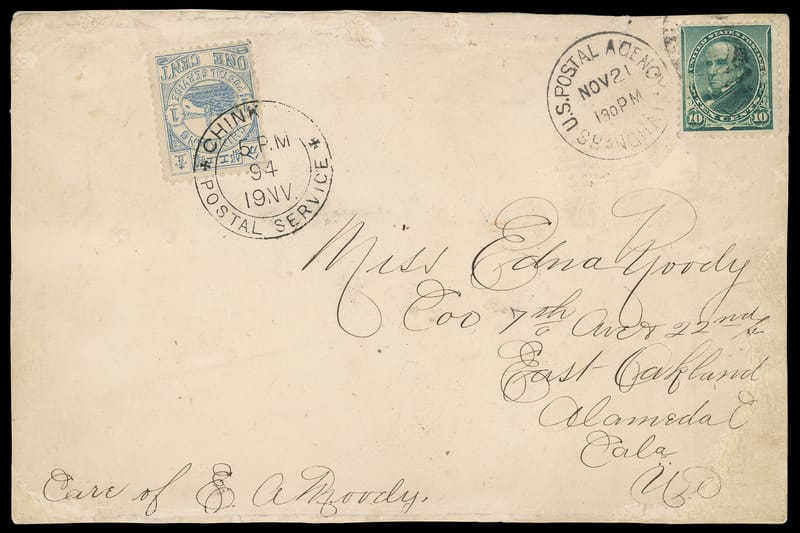 ONE CENT
POSTAL SERVICE
1
CHINKIANG
CHINKI
5 P.M
94
19 NV.
POSTAL SERVICE
U.S. POSTAL AGENCY
NOV 21
130 PM
SHANGHAI
UNITED STATES POSTAGE
10 TEN CENTS 10
Miss Edna Moody
Cor 7th Ave & 22nd St
East Oakland
Alameda C
Cala
U.S
Care of E. A Moody.